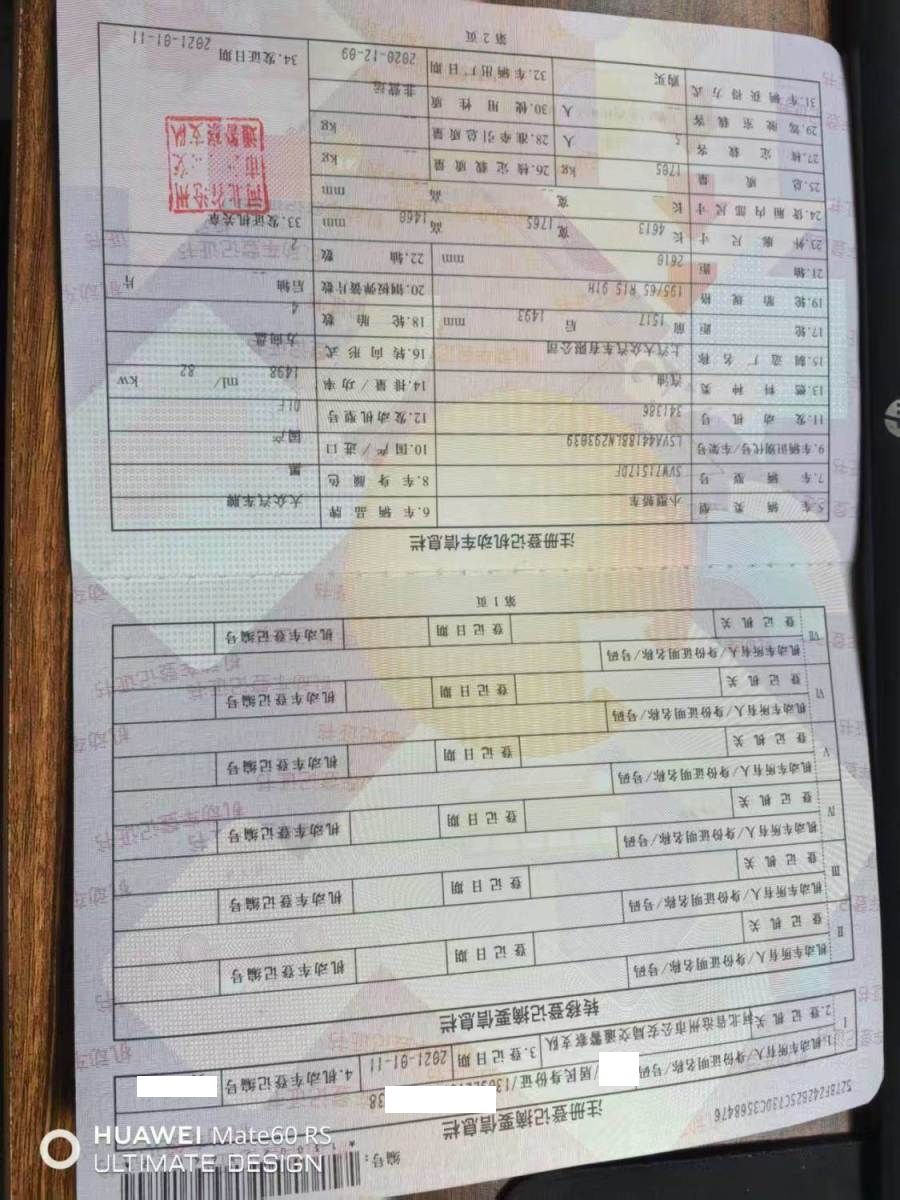 编号:
注册登记摘要信息栏
5278FZ42B25C73DC3568476
I
1.机动车所有人/身份证明名称/号码
/居民身份证/
38
2.登记机关
河北省沧州市公安局交通警察支队
3.登记日期
2021-01-11
4.机动车登记编号
转移登记摘要信息栏
II
机动车所有人/身份证明名称/号码
登记机关
登记日期
机动车登记编号
III
机动车所有人/身份证明名称/号码
登记机关
登记日期
机动车登记编号
IV
机动车所有人/身份证明名称/号码
登记机关
登记日期
机动车登记编号
V
机动车所有人/身份证明名称/号码
登记机关
登记日期
机动车登记编号
VI
机动车所有人/身份证明名称/号码
登记机关
登记日期
机动车登记编号
VII
机动车所有人/身份证明名称/号码
登记机关
登记日期
机动车登记编号
第1页
注册登记机动车信息栏
5.车辆类型 小型轿车 6.车辆品牌 大众汽车牌
7.车辆型号 SVW71517DF 8.车身颜色 黑
9.车辆识别代号/车架号 LSVAA4188LN293039 10.国产/进口 国产
11.发动机号 341386 12.发动机型号 DLF
13.燃料种类 汽油 14.排量/功率 1498 ml/ 82 kw
15.制造厂名称 上汽大众汽车有限公司 16.转向形式 方向盘
17.轮距 前 1517 后 1493 mm 18.轮胎数 4
19.轮胎规格 195/65 R15 91H 20.钢板弹簧片数 后轴 -- 片
21.轴距 2610 mm 22.轴数 2
23.外廓尺寸 长 4613 宽 1765 高 1460 mm 33.发证机关章
24.货厢内部尺寸 长 宽 高 mm
25.总质量 1765 kg 26.核定载质量 -- kg
27.核定载客 5 人 28.准牵引总质量 -- kg
29.驾驶室载客 人 30.使用性质 非营运
31.车辆获得方式 购买 32.车辆出厂日期 2020-12-09 34.发证日期 2021-01-11
河北省沧州
市
交
通警察支队
第2页
HUAWEI Mate60 RS
ULTIMATE DESIGN